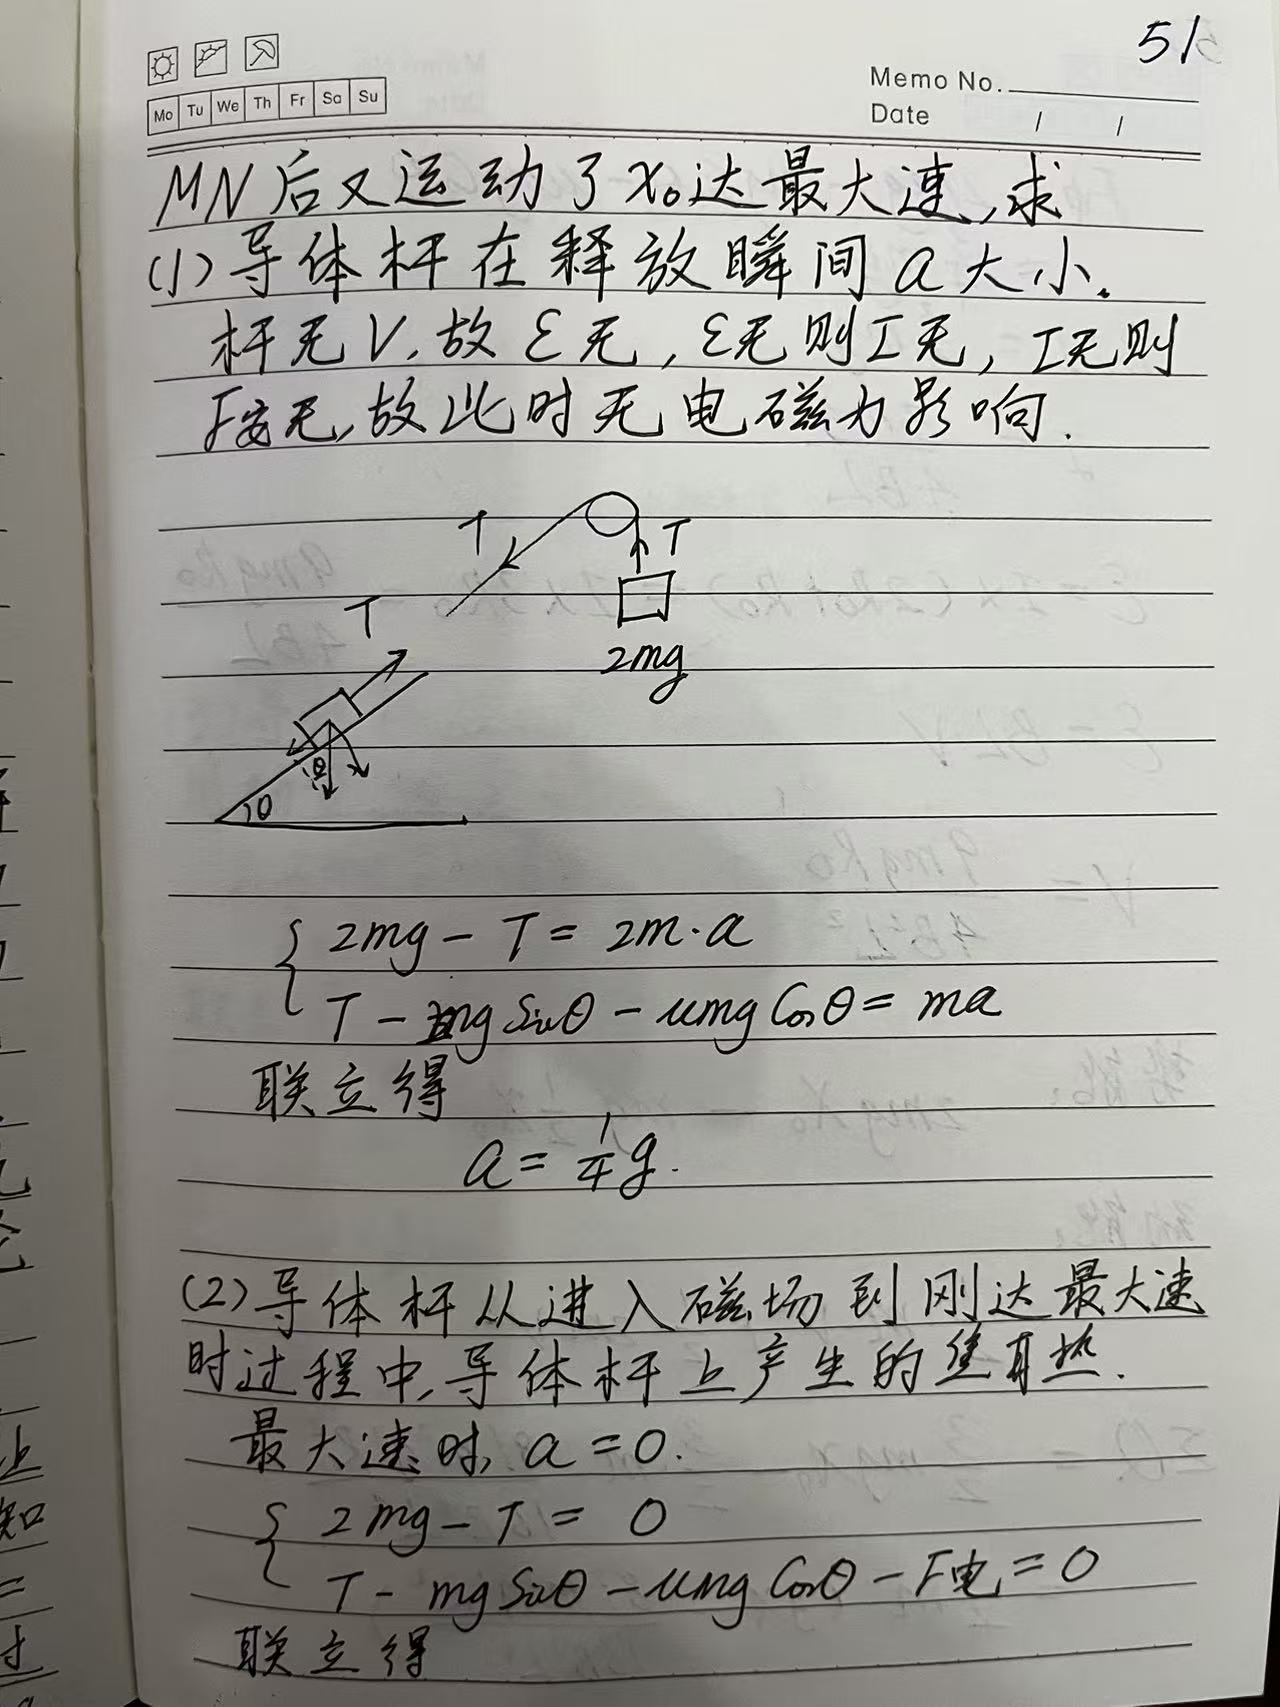 51
Memo No.
Mo Tu We Th Fr Sa Su
Date / /
MN后又运动了x₀达最大速,求
(1)导体杆在释放瞬间a大小.
杆无V,故ε无,ε无则I无,I无则
F安无,故此时无电磁力影响.
T
T
T
2mg
θ
θ
2mg-T=2m·a
T-mgSinθ-umgCosθ=ma
联立得
a=1/4g.
(2)导体杆从进入磁场到刚达最大速
时过程中,导体杆上产生的焦耳热.
最大速时,a=0.
2mg-T=0
T-mgSinθ-umgCosθ-F电=0
联立得